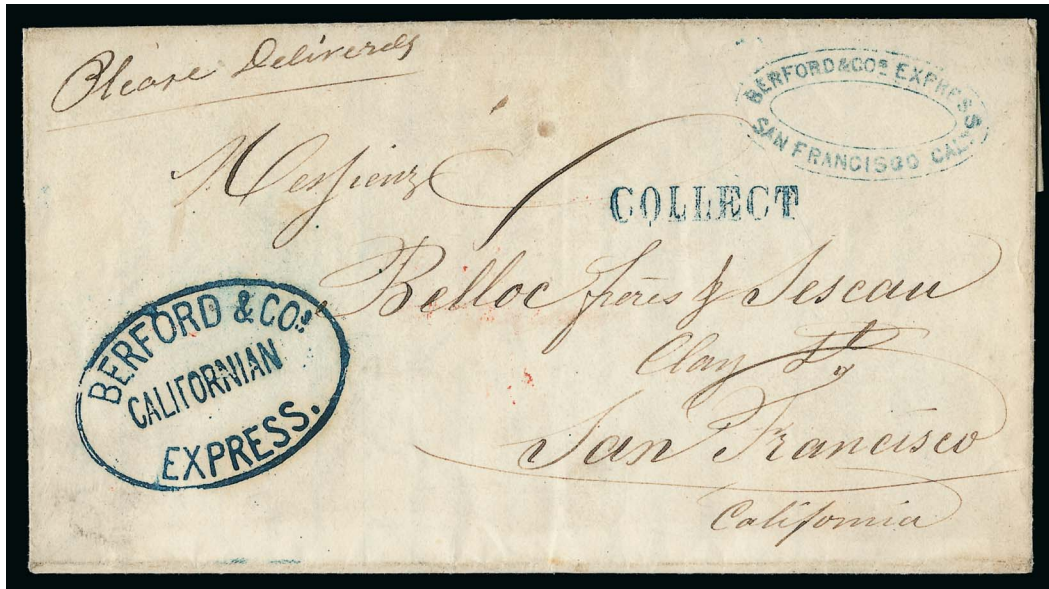 Please Deliver
BERFORD & COS EXPRESS
SAN FRANCISCO CAL
Messieurs
COLLECT
Belloc frères & Sescau
Clay St
San Francisco
California
BERFORD & COS
CALIFORNIAN
EXPRESS.